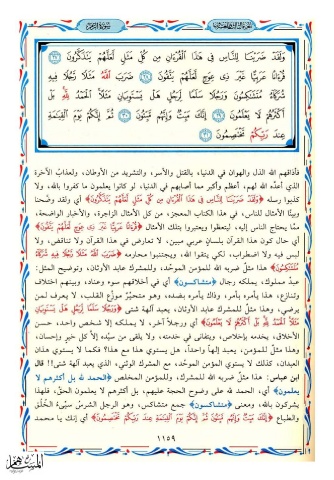 سورة الزمر
وَلَقَدْ ضَرَبْنَا لِلنَّاسِ فِي هَٰذَا الْقُرْآنِ مِن كُلِّ مَثَلٍ لَّعَلَّهُمْ يَتَذَكَّرُونَ ﴿٢٧﴾
قُرْآنًا عَرَبِيًّا غَيْرَ ذِي عِوَجٍ لَّعَلَّهُمْ يَتَّقُونَ ﴿٢٨﴾ ضَرَبَ اللَّهُ مَثَلًا رَّجُلًا فِيهِ
شُرَكَاءُ مُتَشَاكِسُونَ وَرَجُلًا سَلَمًا لِّرَجُلٍ هَلْ يَسْتَوِيَانِ مَثَلًا الْحَمْدُ لِلَّهِ بَلْ
أَكْثَرُهُمْ لَا يَعْلَمُونَ ﴿٢٩﴾ إِنَّكَ مَيِّتٌ وَإِنَّهُم مَّيِّتُونَ ﴿٣٠﴾ ثُمَّ إِنَّكُمْ يَوْمَ الْقِيَامَةِ
عِندَ رَبِّكُمْ تَخْتَصِمُونَ ﴿٣١﴾
فأذاقهم الله الذل والهوان في الدنيا، بالقتل والأسر، والتشريد من الأوطان، ولعذاب الآخرة
الذي أعدّه الله لهم، أعظم وأكبر مما أصابهم في الدنيا، لو كانوا يعلمون ما كفروا بالله، ولا
كذبوا رسله ﴿وَلَقَدْ ضَرَبْنَا لِلنَّاسِ فِي هَٰذَا الْقُرْآنِ مِن كُلِّ مَثَلٍ لَّعَلَّهُمْ يَتَذَكَّرُونَ﴾ أي ولقد وضّحنا
وبيّنا الأمثال للناس، في هذا الكتاب المعجز، من كل الأمثال الزاجرة، والأخبار الواضحة،
ممّا يحتاج الناس إليه، ليتعظوا ويعتبروا بتلك الأمثال ﴿قُرْآنًا عَرَبِيًّا غَيْرَ ذِي عِوَجٍ لَّعَلَّهُمْ يَتَّقُونَ﴾
أي حال كون هذا القرآن بلسانٍ عربي مبين، لا تعارض في هذا القرآن ولا تناقض، ولا
لبس فيه ولا اضطراب، لكي يتقوا الله، ويجتنبوا محارمه ﴿ضَرَبَ اللَّهُ مَثَلًا رَّجُلًا فِيهِ شُرَكَاءُ
مُتَشَاكِسُونَ﴾ هذا مثلٌ ضربه الله للمؤمن الموحّد، وللمشرك عابد الأوثان، وتوضيح المثل:
عبدٌ مملوك، يملكه رجال ﴿متشاكسون﴾ أي في أخلاقهم سوء وعناد، وبينهم اختلاف
وتنازع، هذا يأمره بأمر، وذاك يأمره بضده، وهو متحيّر موزّع القلب، لا يعرف لمن
يرضي، وهذا مثلٌ للمشرك عابد الأوثان، يعبد آلهة شتى ﴿وَرَجُلًا سَلَمًا لِّرَجُلٍ هَلْ يَسْتَوِيَانِ
مَثَلًا الْحَمْدُ لِلَّهِ بَلْ أَكْثَرُهُمْ لَا يَعْلَمُونَ﴾ أي ورجلاً آخر، لا يملكه إلا شخص واحد، حسن
الأخلاق، يخدمه بإخلاص، ويتفانى في خدمته، ولا يلقى من سيّده إلاّ كل خير وإحسان،
وهذا مثلٌ للمؤمن، يعبد إلهاً واحداً، هل يستوي هذا مع هذا؟ فكما لا يستوي هذان
العبدان، كذلك لا يستوي المؤمن الموحّد، مع المشرك الوثني، الذي يعبد آلهة شتى!! قال
ابن عباس: هذا مثلٌ ضربه الله للمشرك، وللمؤمن المخلص ﴿الحمد لله بل أكثرهم لا
يعلمون﴾ أي، الحمد لله على وضوح الحجة عليهم، بل أكثرهم لا يعلمون الحقّ، فلهذا
يشركون بالله، ومعنى ﴿متشاكسون﴾ جمع متشاكس، وهو الرجل الشرس سيّئ الخُلُق
والطباع ﴿إِنَّكَ مَيِّتٌ وَإِنَّهُم مَّيِّتُونَ ثُمَّ إِنَّكُمْ يَوْمَ الْقِيَامَةِ عِندَ رَبِّكُمْ تَخْتَصِمُونَ﴾ أي إنك يا محمد
١١٥٩